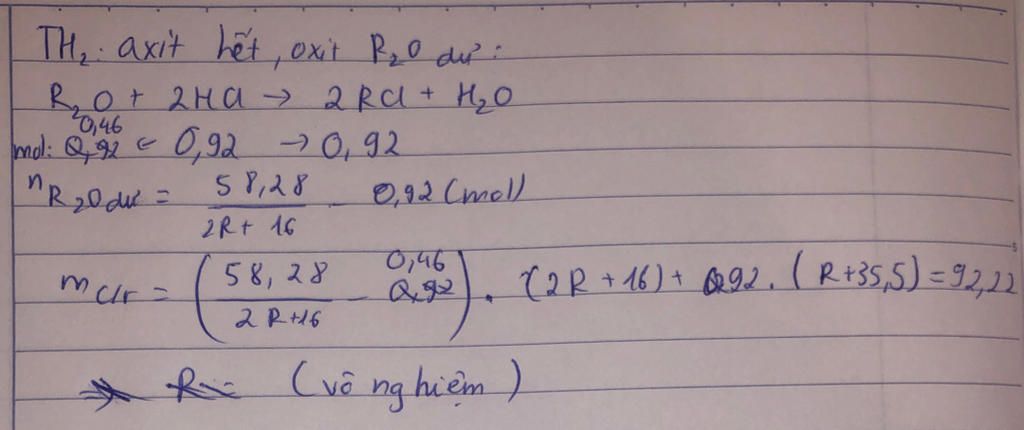 TH₂: axit hết, oxit R₂O dư:
R₂O + 2HCl → 2RCl + H₂O
0,46
mol: 0,92 ← 0,92 → 0,92
nR₂O dư = 58,28 / (2R + 16) - 0,92 (mol)
mc/r = (58,28 / (2R+16) - 0,92 0,46) . (2R + 16) + 0,92 . (R+35,5) = 92,22
=> R = (vô nghiệm)